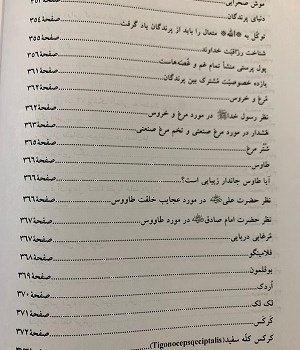 موش صحرایی
دنیای پرندگان
توکل به «الله» متعال را باید از پرندگان یاد گرفت صفحهٔ ۳۵۲
شناخت رزاقیّت خداوند صفحهٔ ۳۵۴
پول پرستی منشأ تمام غم و غُصّه‌هاست صفحهٔ ۳۵۶
یازده خصوصیّت مُشترک بین پرندگان صفحهٔ ۳۶۱
مُرغ و خروس صفحهٔ ۳۶۲
نظر رسول خدا ﷺ در مورد مرغ و خروس صفحهٔ ۳۶۲
هُشدار در مورد مرغ صنعتی و تخم مرغ صنعتی صفحهٔ ۳۶۳
شُتُر مرغ صفحهٔ ۳۶۵
طاوس صفحهٔ ۳۶۶
آیا طاوس جاندار زیبایی است؟ صفحهٔ ۳۶۶
نظر حضرت علی در مورد عجایب خلقت طاووس صفحهٔ ۳۶۶
نظر حضرت امام صادق در مورد طاووس صفحهٔ ۳۶۷
مُرغابی دریایی صفحهٔ ۳۶۷
فلامینگو صفحهٔ ۳۶۸
بوقلمون صفحهٔ ۳۶۹
اُردک صفحهٔ ۳۷۰
لک لک صفحهٔ ۳۷۱
کرکس صفحهٔ ۳۷۲
کرکس کلّه سفید (Tigonocepsqcciptalis) صفحهٔ